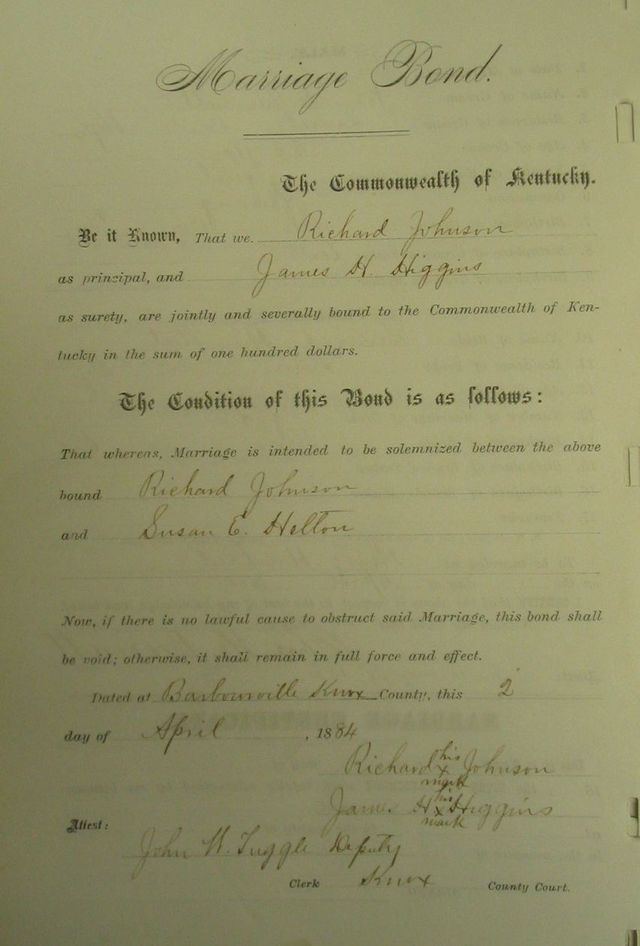 Marriage Bond.
The Commonwealth of Kentucky.
Be it Known, That we Richard Johnson
as principal, and James H. Higgins
as surety, are jointly and severally bound to the Commonwealth of Ken-
tucky in the sum of one hundred dollars.
The Condition of this Bond is as follows:
That whereas, Marriage is intended to be solemnized between the above
bound Richard Johnson
and Susan E. Helton
Now, if there is no lawful cause to obstruct said Marriage, this bond shall
be void; otherwise, it shall remain in full force and effect.
Dated at Barboursville Knox County, this 2
day of April, 1884
his
Richard x Johnson
mark
his
James H x Higgins
mark
Attest:
John W. Tuggle Deputy
Clerk Knox County Court.